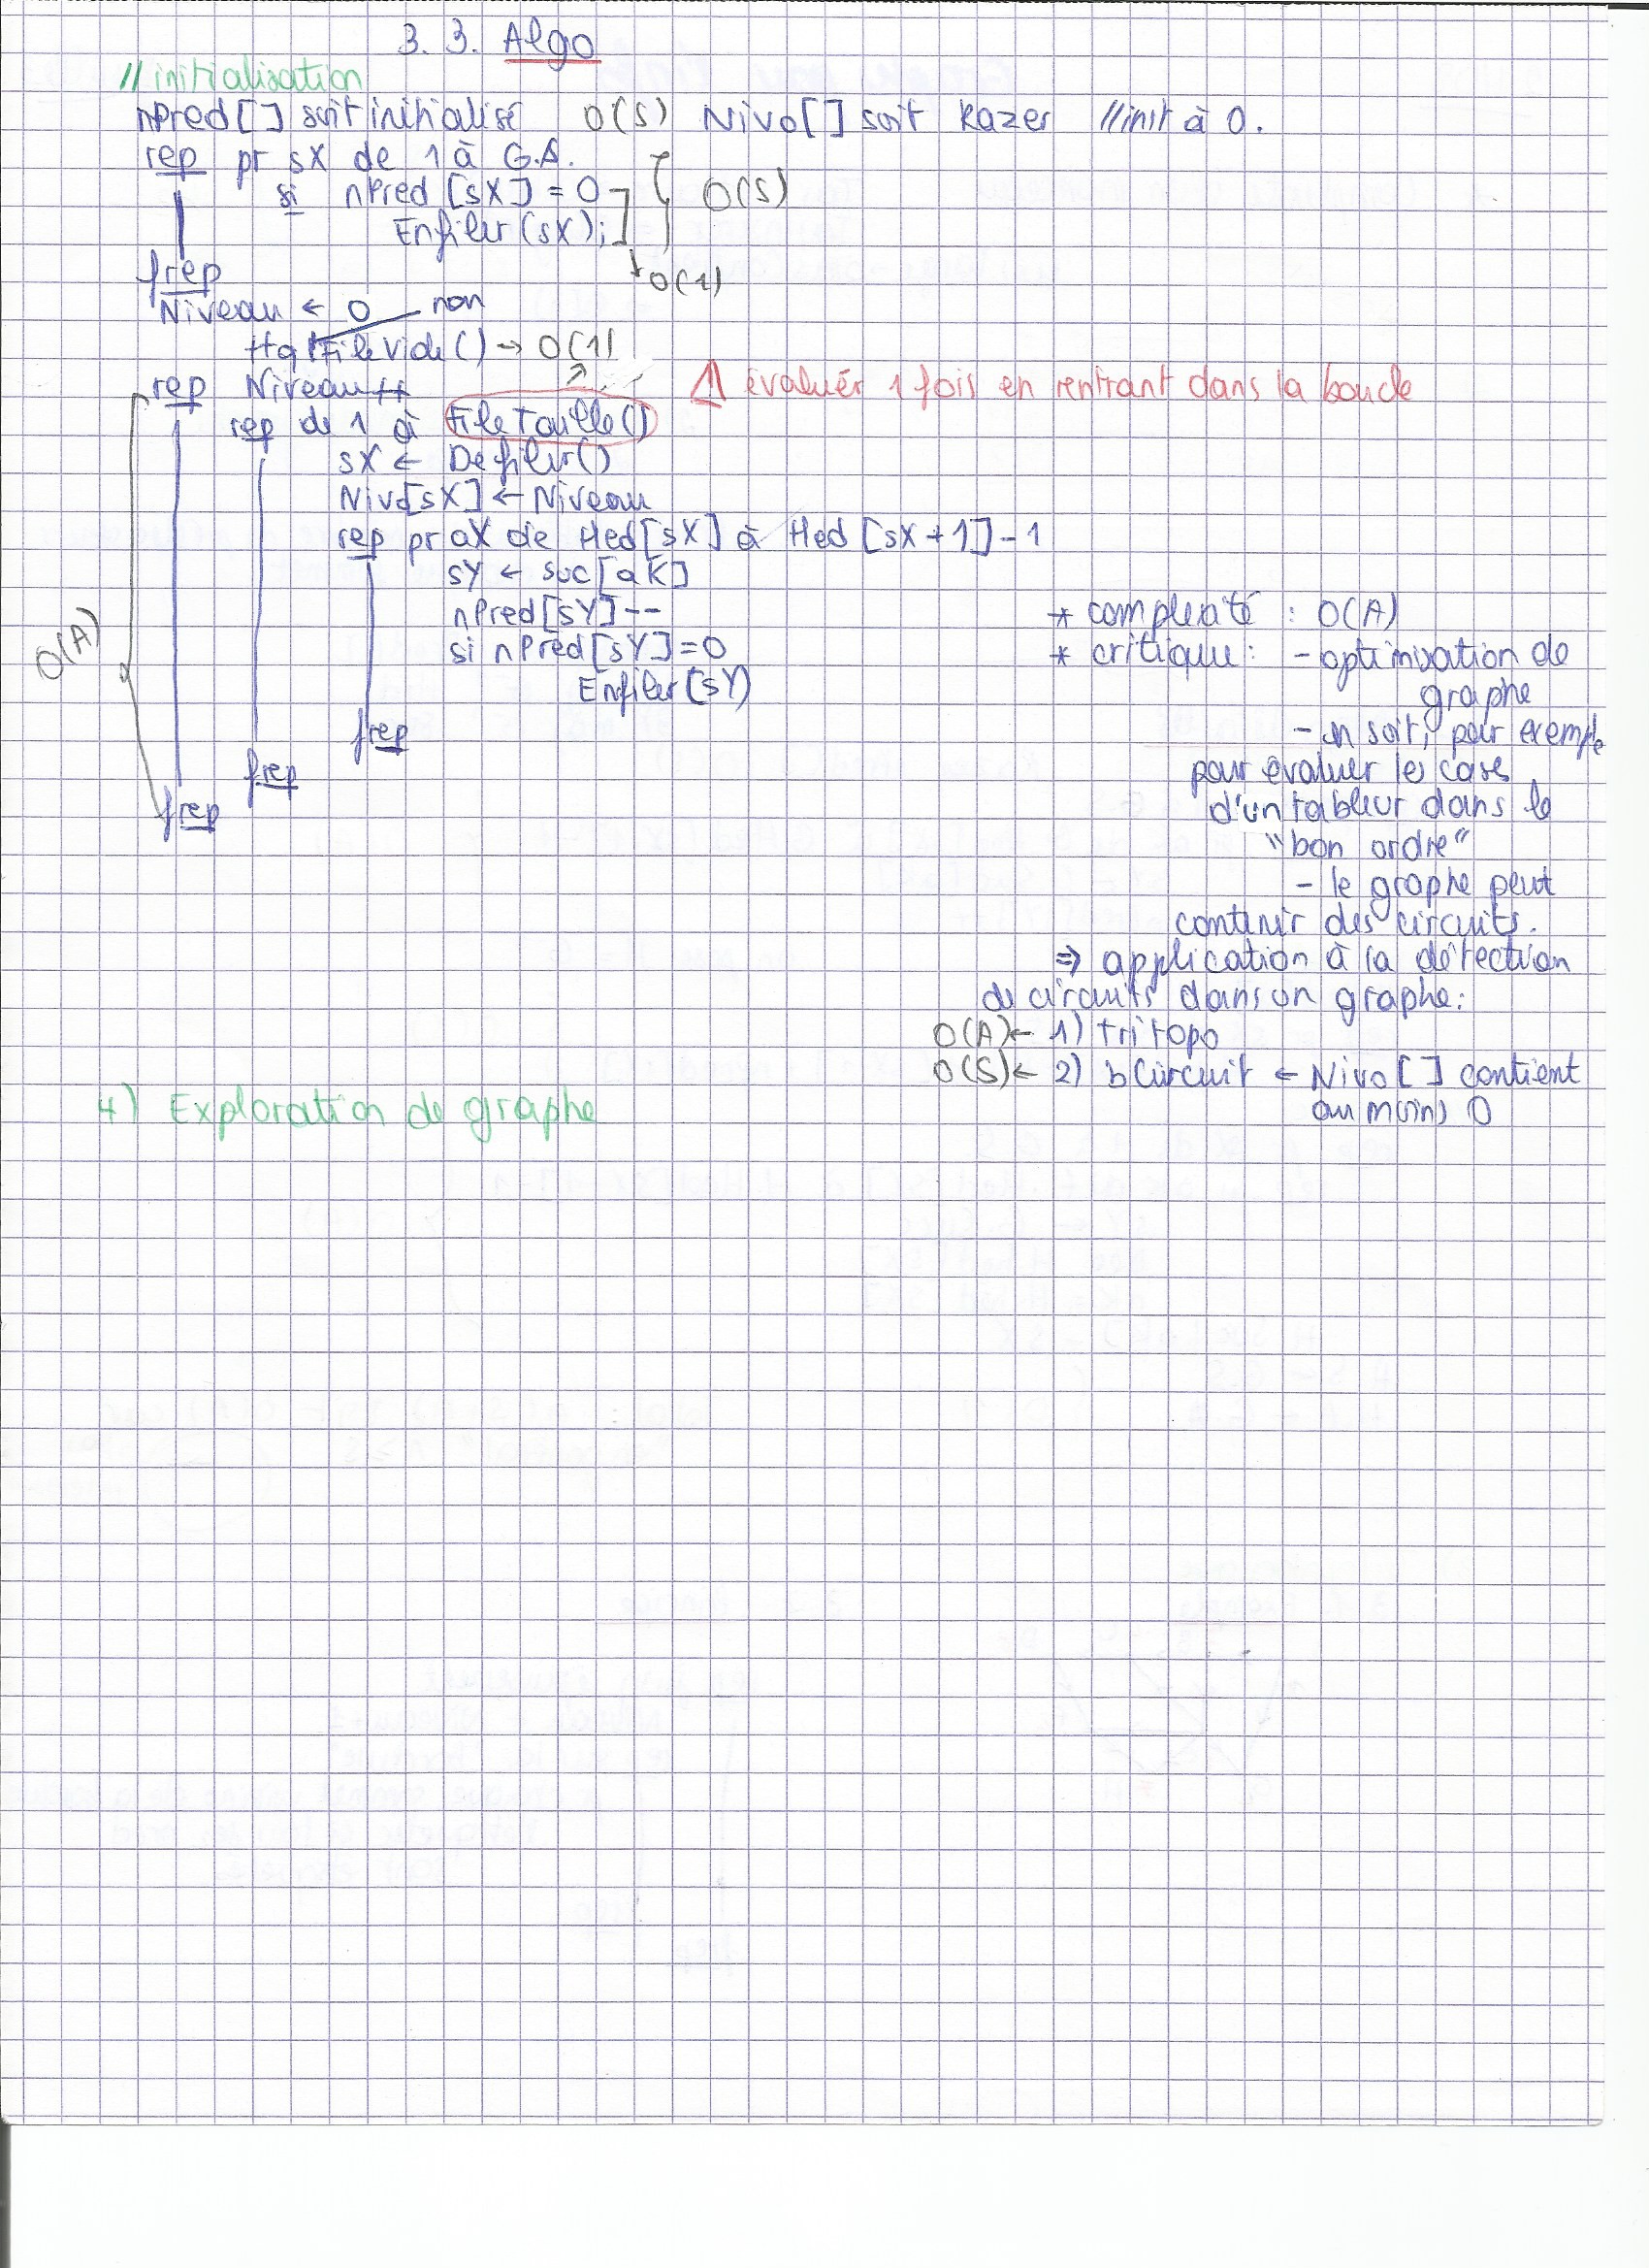 3. 3. Algo
// initialisation
nPred[] soit initialisé O(S) Nivo[] soit Razer //init à 0.
rep pr sX de 1 à G.S.
si nPred[sX] = 0 O(S)
Enfiler(sX);
O(1)
frep
Niveau ← 0 non
tq !FileVide() → O(1)
rep Niveau++ ⚠ évaluér 1 fois en rentrant dans la boucle
rep de 1 à FileTaille()
sX ← Defiler()
Nivo[sX] ← Niveau
rep pr aX de Hed[sX] à Hed[sX+1]-1
sY ← suc[aK]
nPred[sY]--
si nPred[sY]=0
Enfiler(sY)
frep
frep
frep
O(A)
* complexité : O(A)
* critique : - optimisation de
graphe
pour exemple
pour évaluer les cases
d'un tableur dans le
"bon ordre"
- le graphe peut
contenir des circuits.
⇒ application à la détection
de circuits dans un graphe :
O(A) ← 1) tri topo
O(S) ← 2) bCircuit ← Nivo[] contient
au moins 0
4) Exploration de graphe